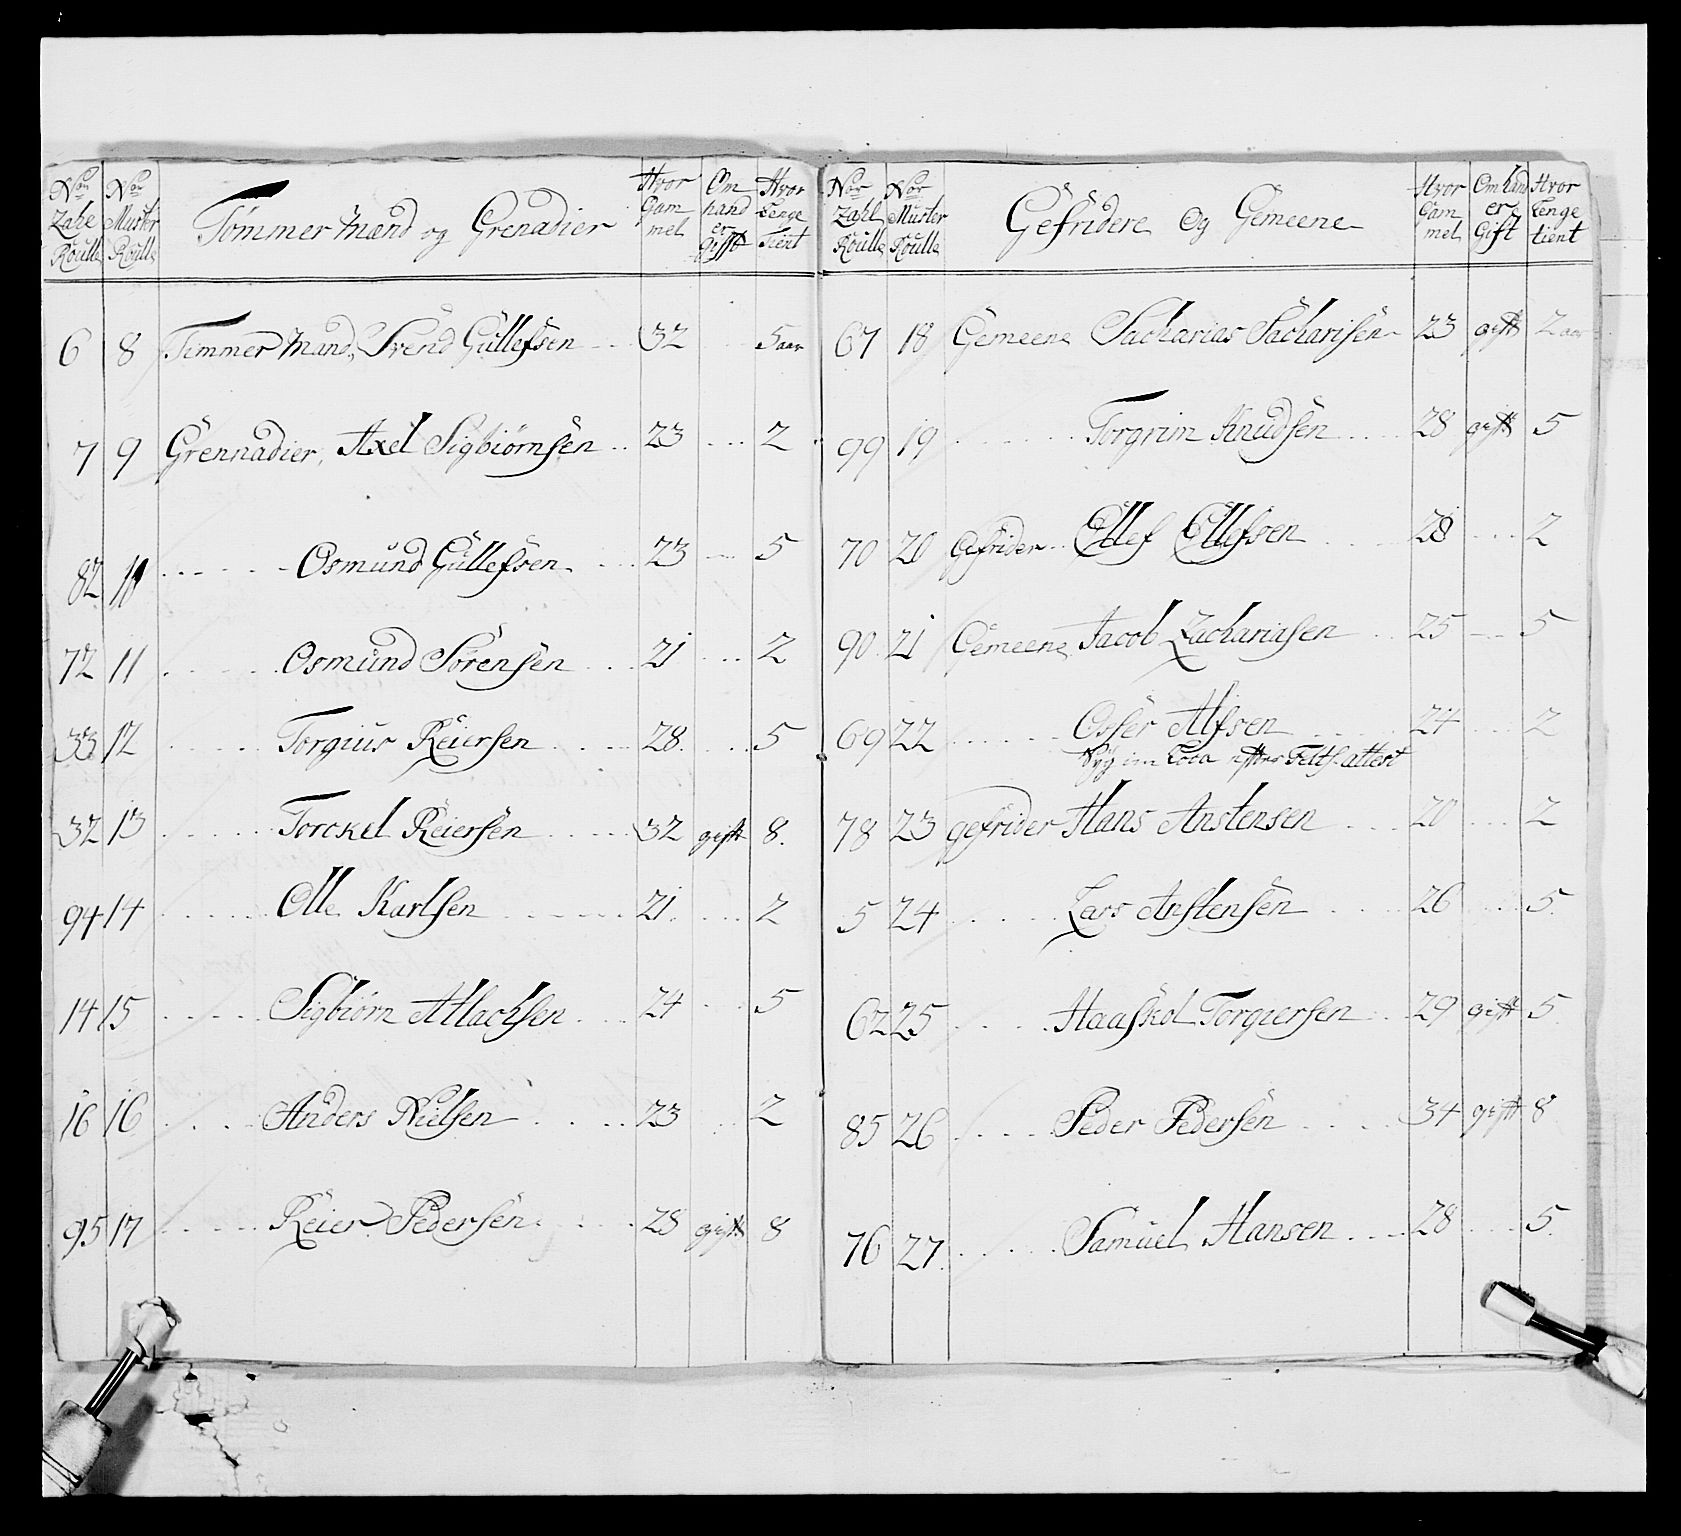 Nor Zahl Roulle | Nor Muster Roulle | Tømmer Mænd og Grenadier | Hvor Gammel | Om hand er gifft | Hvor Lenge Tient
6 8 Timmer Mand, Svend Gullefsen 32 5 aar
7 9 Grennadier, Axel Sigbiørnsen 23 2
82 10 Osmund Gullefsen 23 5
72 11 Osmund Sørensen 21 2
33 12 Torgius Reiersen 28 5
32 13 Torckel Reiersen 32 gift 8
94 14 Olle Karlsen 21 2
14 15 Sigbiørn Atlachsen 24 5
16 16 Anders Nielsen 23 2
95 17 Reier Pedersen 28 gift 8
Nor Zahl Roulle | Nor Muster Roulle | Gefridere Og Gemeene | Hvor Gammel | Om hand er Gift | Hvor Lenge tient
67 18 Gemeene Sacharias Sacharisen 23 gift 2 aar
99 19 Torgrim Knudsen 28 gift 5
70 20 Gefrider Ellef Ellefsen 28 2
90 21 Gemeene Jacob Zachariasen 25 5
69 22 Osser Alfsen 24 2
Syg im Loco effter Felts. attest
78 23 gefrider Hans Anstensen 20 2
5 24 Lars Anstensen 26 5
62 25 Haaskol Torgiersen 29 gift 5
85 26 Peder Pedersen 34 gift 8
76 27 Samuel Hansen 28 5